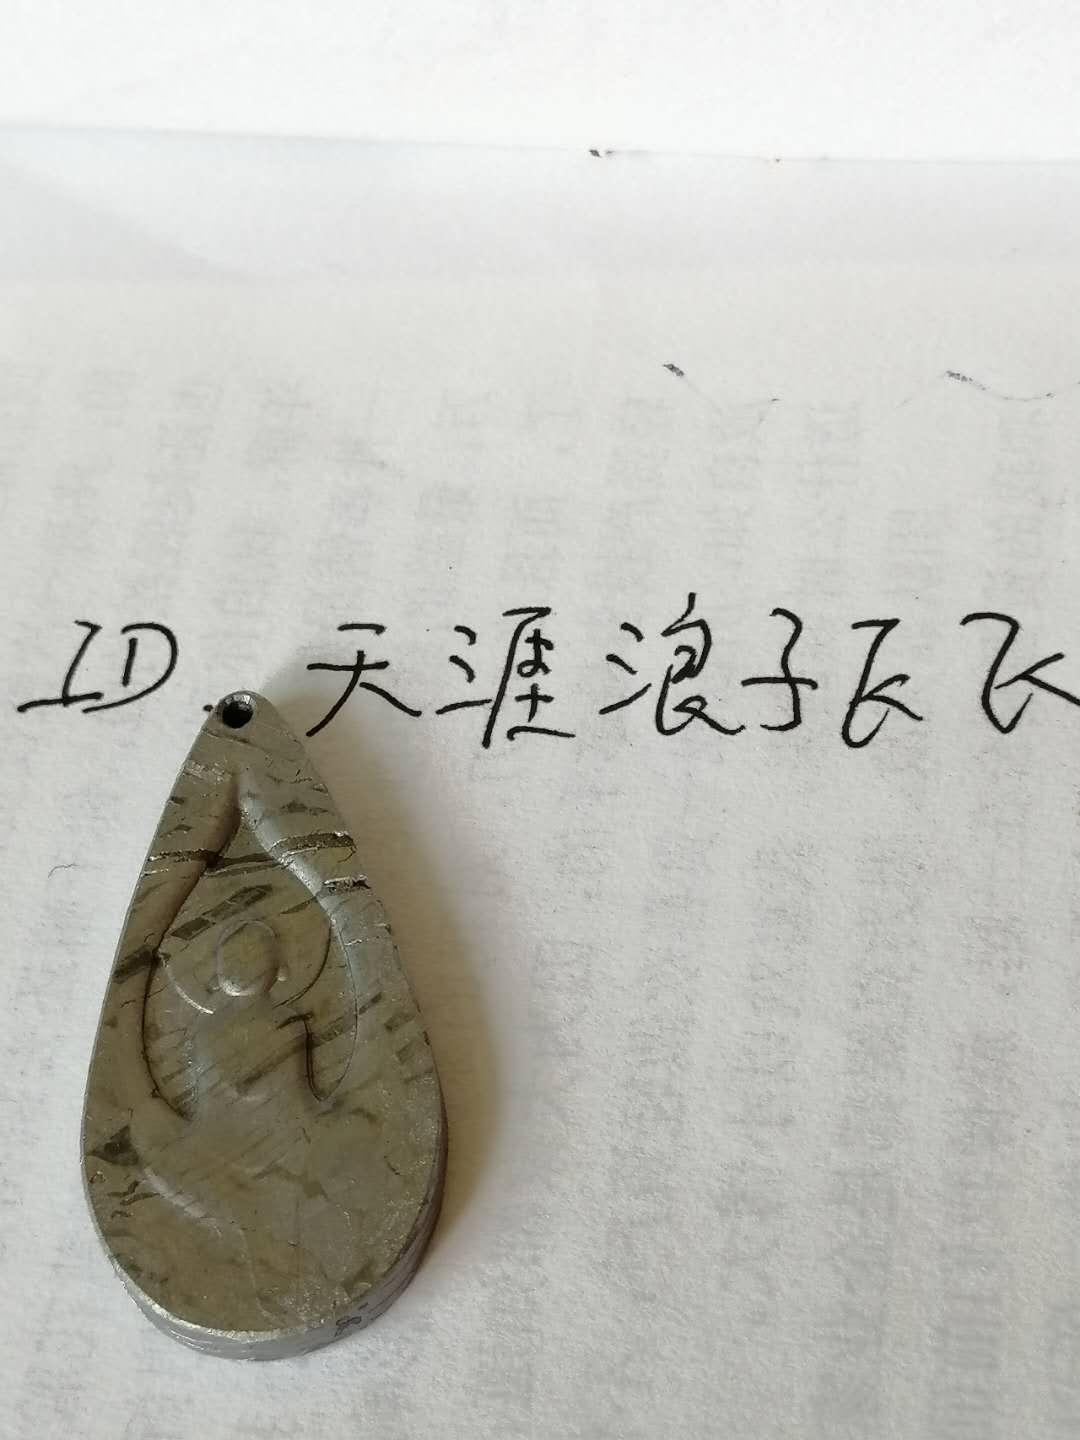 ID.天涯浪子飞飞